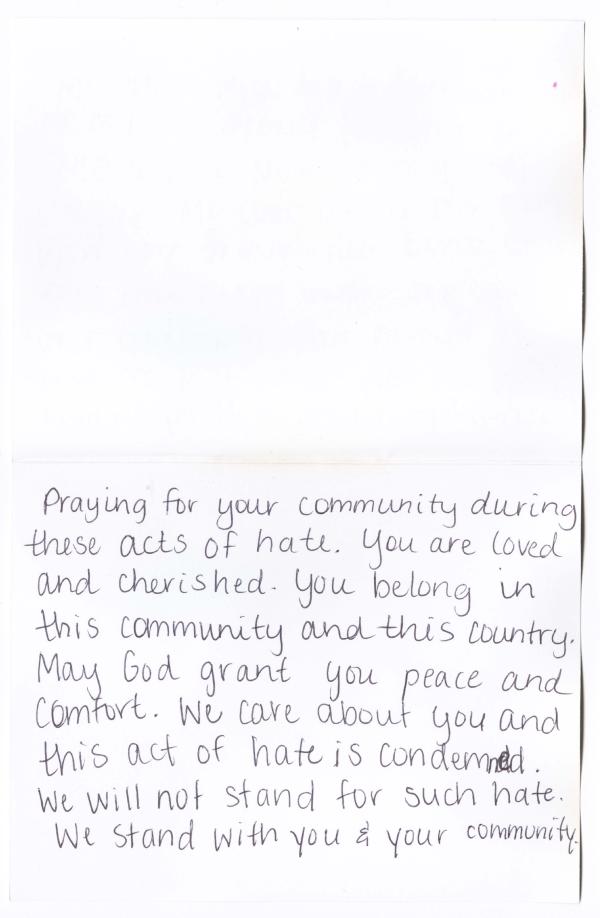 Praying for your community during
these acts of hate. You are loved
and cherished. You belong in
this community and this country.
May God grant you peace and
comfort. We care about you and
this act of hate is condemned.
We will not stand for such hate.
We stand with you & your community.